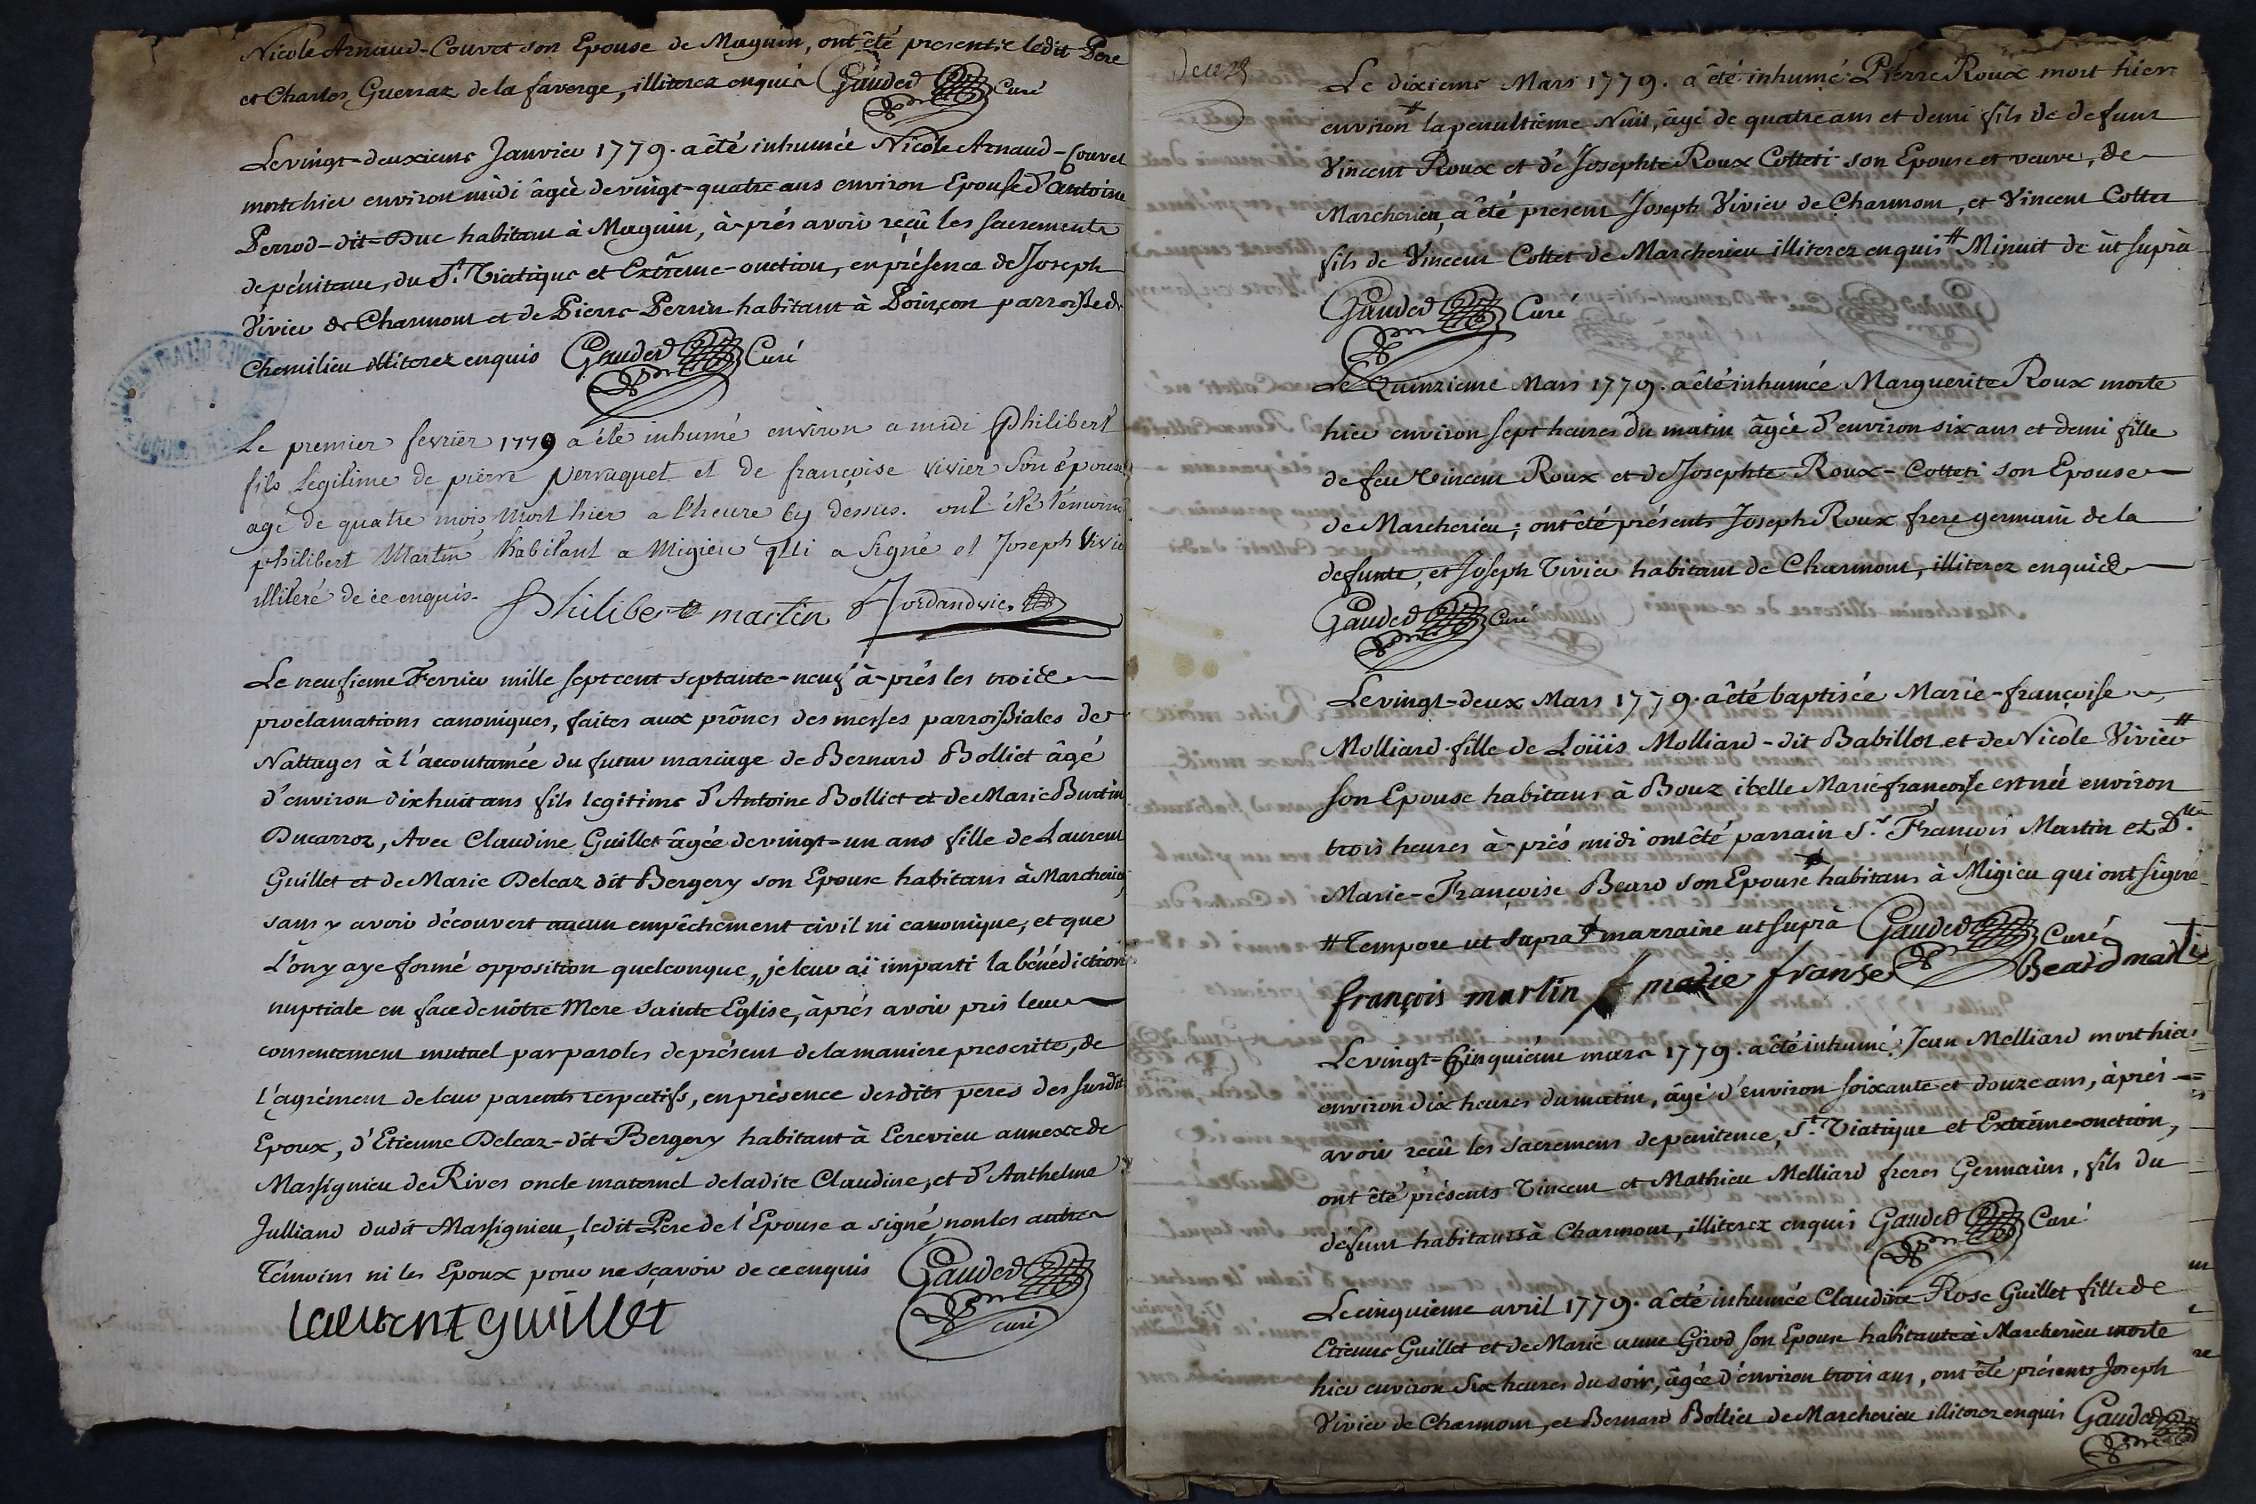 Nicole Arnaud-Couvet son Epouse de Maguin, ont été presents ledit Pere
et Charles Guerraz de la faverge, illiterez enquis Gauded Curé
Le vingt-deuxieme Janvier 1779. a été inhumée Nicole Arnaud-Couvet
morte hier environ midi âgée de vingt-quatre ans environ Epouse d'Antoine
Perrod-dit-Duc habitant à Maguin, à-prés avoir reçû les sacrements
de pénitence, du St. Viatique et Extrême-onction, en présence de Joseph
Vivier de Charmont et de Pierre Perrin habitant à Poinçon parroisse de
Chemilieu illiterez enquis Gauded Curé
Le premier fevrier 1779 a été inhumé environ a midi Philibert
fils Légitime de pierre perraquet et de françoise vivier son épouse
agé de quatre mois mort hier a l'heure cy dessus. ont été témoins
philibert Martin habitant a Migieu qui a signé et Joseph Vivier
illiteré de ce enquis.
Philibert martin Jordan vic.
Le neufieme Fevrier mille sept cent septante-neuf à-prés les trois
proclamations canoniques, faites aux prônes des messes parroissiales de
Nattages à l'accoutumée du futur mariage de Bernard Bolliet âgé
d'environ dixhuit ans fils legitime d'Antoine Bolliet et de Marie Burtin
Ducarroz, Avec Claudine Guillet âgée de vingt-un ans fille de Laurent
Guillet et de Marie Deleaz dit Bergery son Epouse habitans à Marcherieu,
sans y avoir découvert aucun empêchement civil ni canonique, et que
l'on y aye formé opposition quelconque, je leur aï imparti la bénédiction
nuptiale en face de nôtre Mere sainte Eglise, àprés avoir pris leur
consentement mutuel par paroles de présent de la maniere prescrite, de
l'agrément de leur parents respectifs, en présence desdits peres des susdits
Epoux, d'Etienne Deleaz-dit Bergery habitant à Ecrevieu annexe de
Massignieu de Rives oncle maternel de ladite Claudine, et d'Anthelme
Julliand dudit Massignieu, ledit Pere de l'Epouse a signé, non les autres
Témoins ni les Epoux pour ne sçavoir de ce enquis Gauded
curé
laurent guillet
Le dixieme Mars 1779. a été inhumé Pierre Roux mort hier
environ # la penultieme Nuit, âgé de quatre ans et demi fils de defunt
Vincent Roux et de Josephte Roux Colleti son Epouse et veuve, de
Marcherieu, a été present Joseph Vivier de Charmont, et Vincent Collet
fils de Vincent Collet de Marcherieu illiterez enquis # Minuit de ùt suprà
Gauded Curé
Le Quinzieme Mars 1779. a été inhumée Marguerite Roux morte
hier environ sept heures du matin âgée d'environ six ans et demi fille
de feu Vincent Roux et de Josephte Roux-Colleti son Epouse
de Marcherieu; ont été présents Joseph Roux frere germain de la
defunte, et Joseph Vivier habitant de Charmont, illiterez enquis
Gauded Curé
Le vingt-deux Mars 1779. a été baptisée Marie-françoise
Molliard fille de Loüis Molliard-dit Babillot et de Nicole Vivier #
son Epouse habitans à Bouz itelle Marie françoise est née environ
trois heures à-prés midi ont été parrain Sr. François Martin et Dlle.
Marie-Françoise Beard son Epouse habitans à Migieu qui ont signé
# Tempore ut supra marraine ut suprà Gauded Curé
françois martin marie franse Beard marti
Le vingt-Cinquiéme mars 1779. a été inhumé Jean Melliard mort hier
environ dix heures du matin, âgé d'environ soixante et douze ans, àprés
avoir reçû les sacremens de penitence, St. Viatique et Extrême-onction,
ont été présents Vincent et Mathieu Melliard freres Germains, fils du
défunt habitants à Charmont, illiterez enquis Gauded Curé
Le cinquieme avril 1779. a été inhumée Claudine Rose Guillet fille de
Etienne Guillet et de Marie anne Girod son Epouse habitante à Marcherieu morte
hier environ six heures du soir, âgée d'environ trois ans, ont été présents Joseph
Vivier de Charmont, et Bernard Bolliet de Marcherieu illiterez enquis Gauded